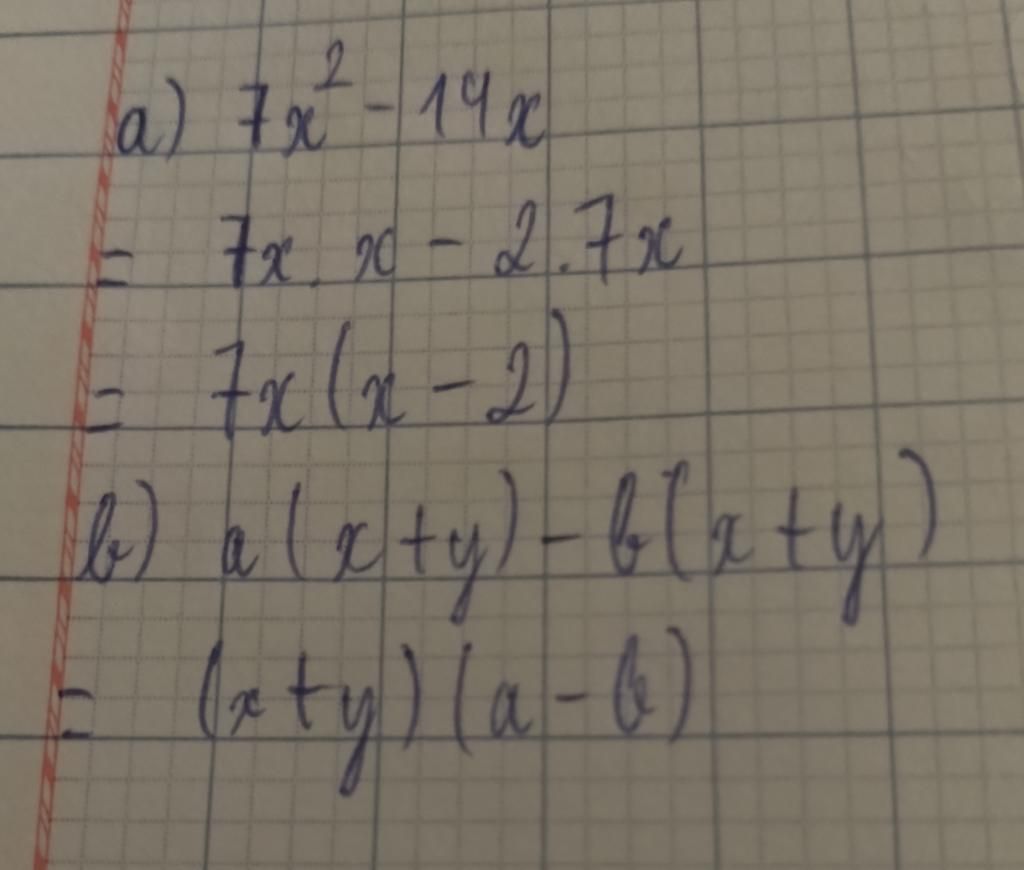 a) 7x² - 14x
= 7x . x - 2 . 7x
= 7x (x - 2)
b) a (x + y) - b (x + y)
= (x + y) (a - b)